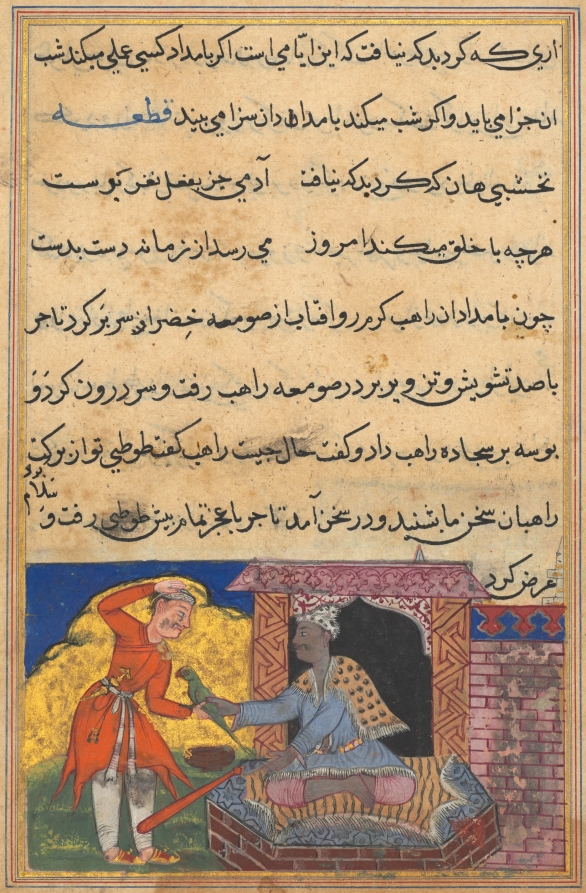 آری که کرد بد که نیافت که این ایامی است اکر بامداد کسی عملی میکند شب
ان جزا می یابد واکر شب میکند بامدادان سزا می بیند قطعه
نخشبی هان که کرد بد که نیافت آدمی جز بفعل نغز نوست
هرچه با خلق میکند امروز می رسد از زمانه دست بدست
چون بامدادان راهب کرم رو افتاب از صومعه خضرا سر بر کرد تاجر
باصد تشویش و تزویر بر در صومعه راهب رفت و سر درون کرد و
بوسه بر سجاده راهب داد و کفت حال چیست راهب کفت طوطی تو از برکت
راهبان سخن ما شنید و در سخن آمد تاجر با عجز تمام پیش طوطی رفت و
برو سلام
عرض کرد